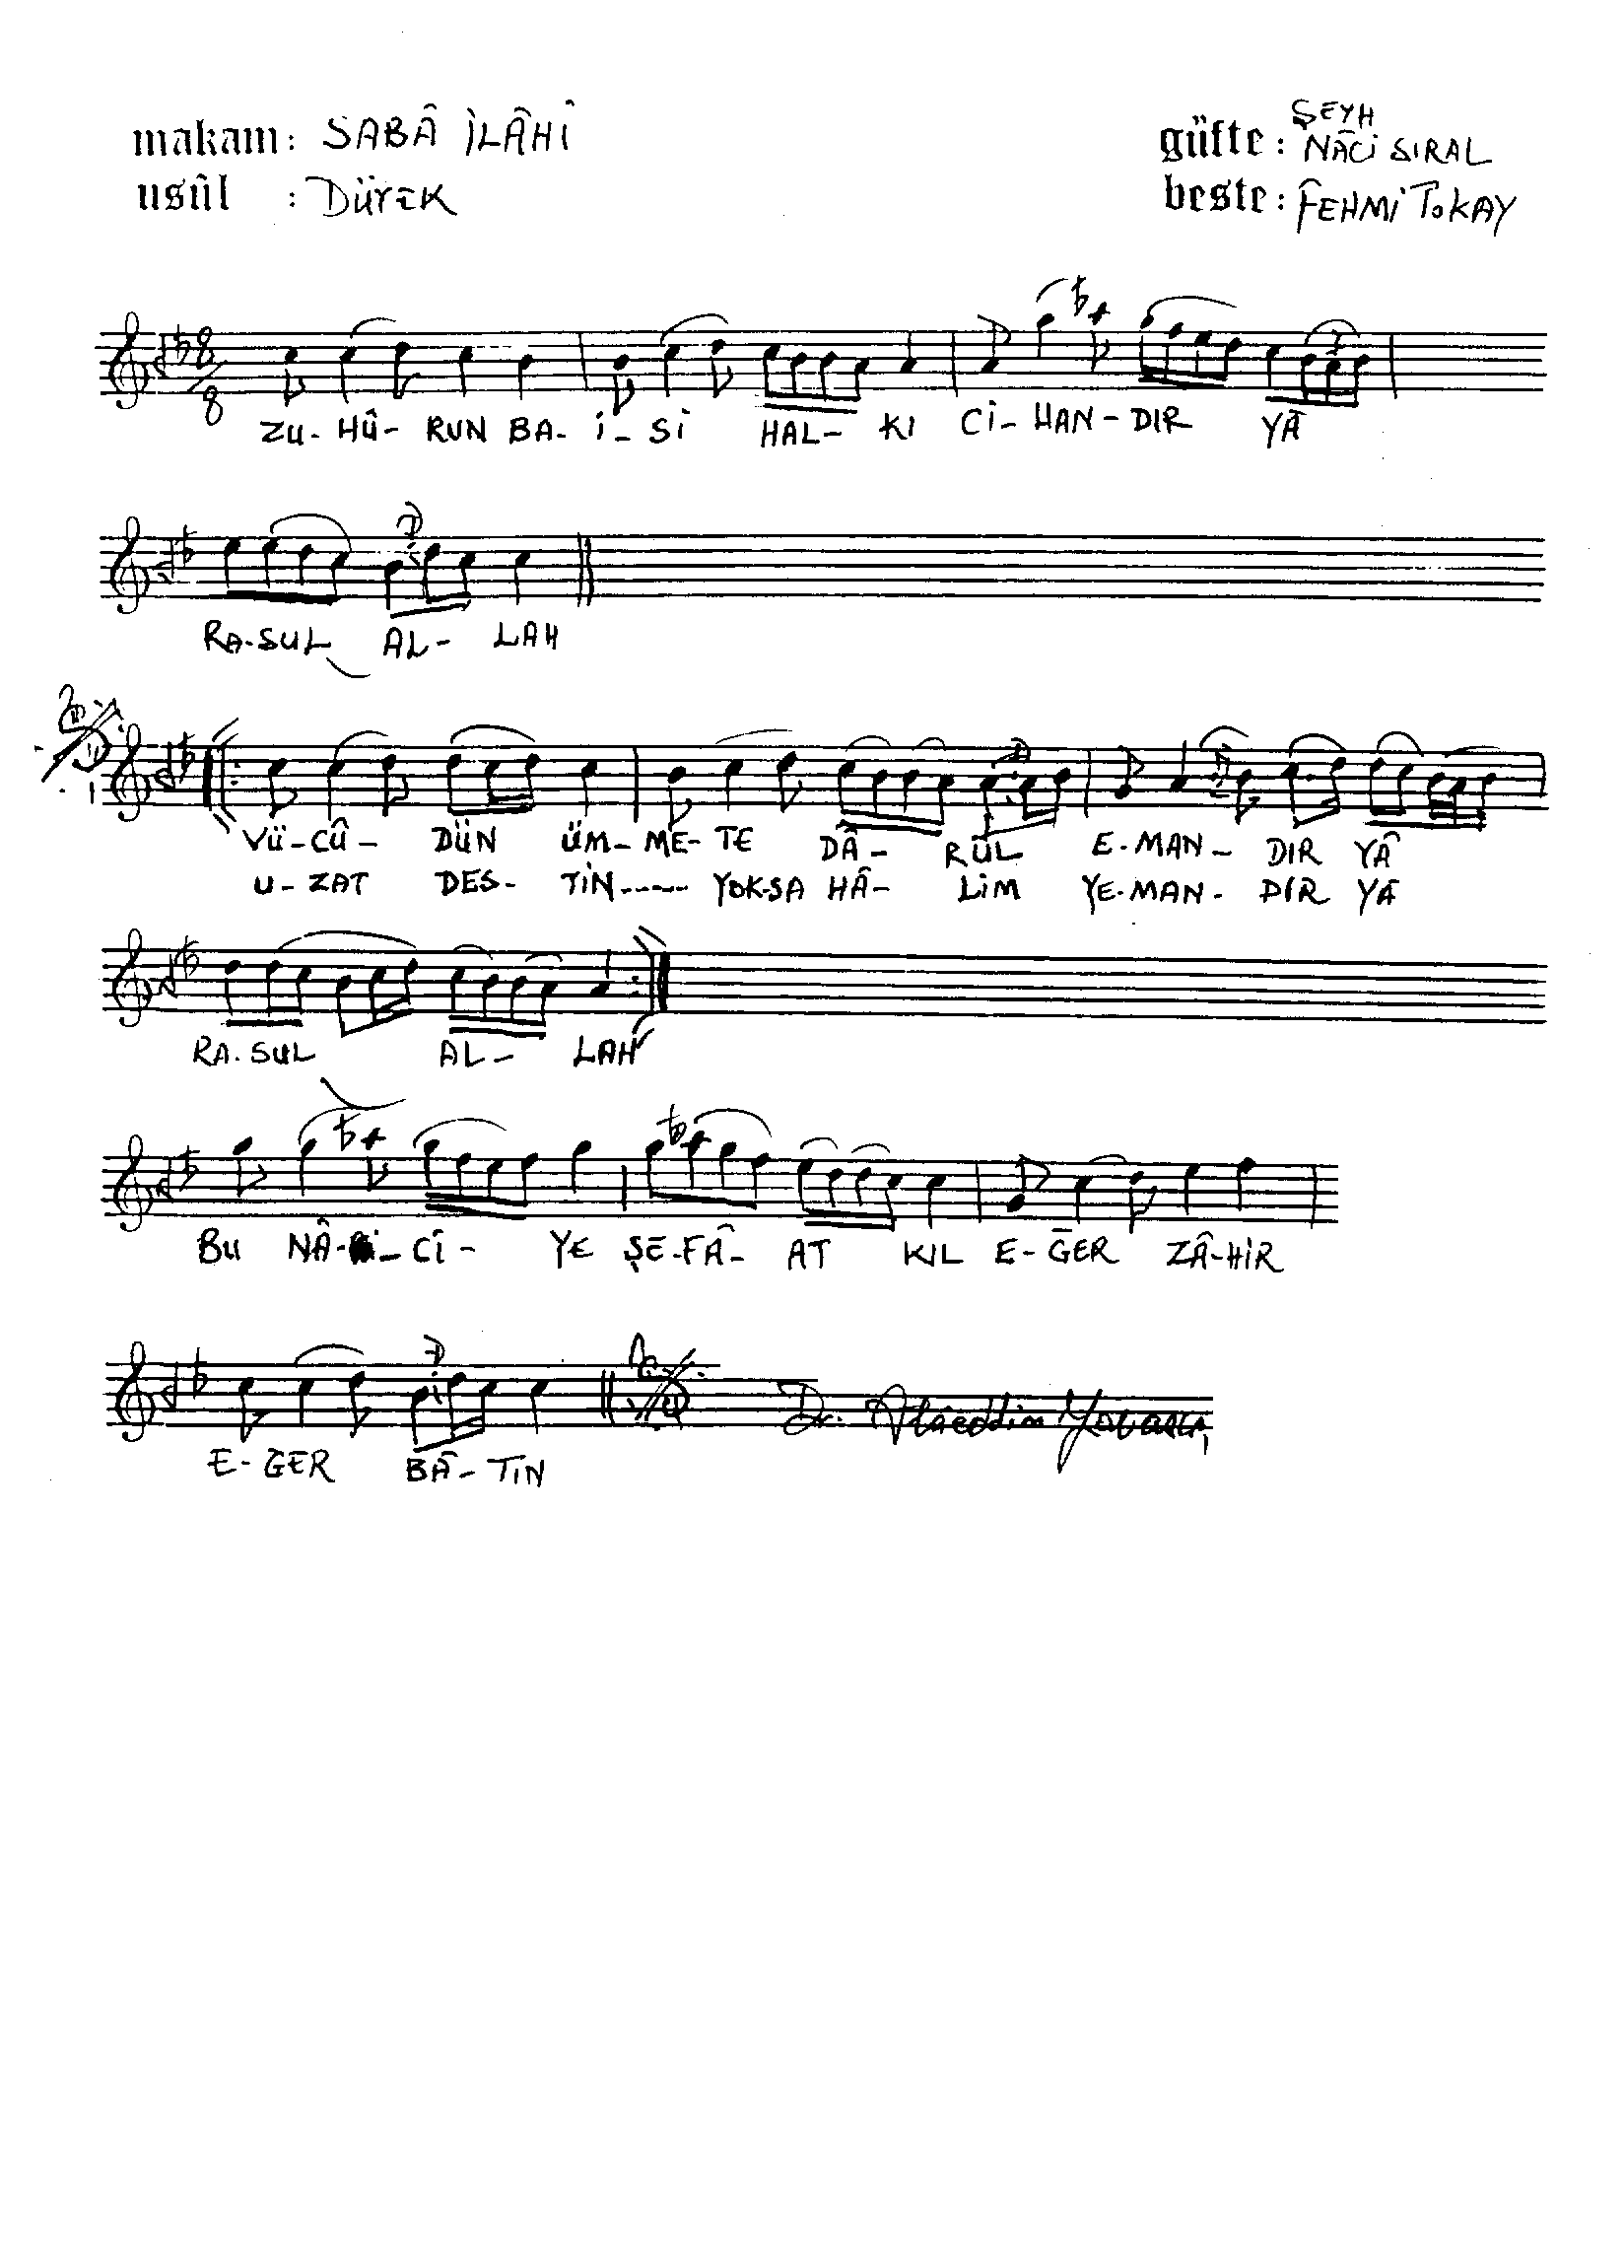 makam: SABÂ İLÂHİ
güfte: ŞEYH NÂCİ SIRAL
usûl : DÜYEK
beste: FEHMİ TOKAY
8/8
ZU- HÛ- RUN BA- İ- Sİ HAL- KI Cİ- HAN- DIR YÂ
RA-SUL AL- LAH
VÜ-CÛ- DÜN ÜM- ME- TE DÂ- RÜL E-MAN- DIR YÂ
U- ZAT DES- TİN---- YOK-SA HÂ- LİM YE-MAN- DIR YÂ
RA-SUL AL- LAH
BU NÂ- Cİ- YE ŞE-FÂ- AT KIL E- ĞER ZÂ-HİR
E- ĞER BÂ- TIN
Dr. Alâeddin Yavaşca